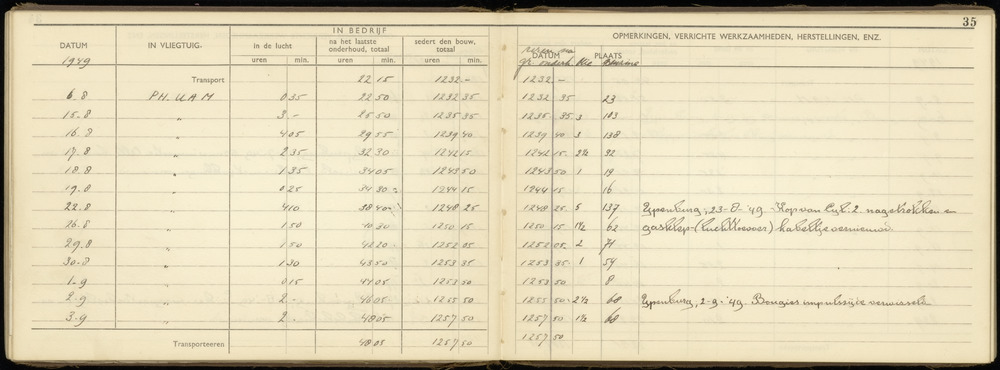 35
IN BEDRIJF
DATUM IN VLIEGTUIG: in de lucht na het laatste onderhoud, totaal sedert den bouw, totaal DATUM PLAATS OPMERKINGEN, VERRICHTE WERKZAAMHEDEN, HERSTELLINGEN, ENZ.
1949 uren min. uren min. uren min.
Transport 22 15 1232 - 1232 -
6-8 PH.UAM 0 35 22 50 1232 35 1232 35 23
15-8 " 3 - 25 50 1235 35 1235 35 3 103
16-8 " 4 05 29 55 1239 40 1239 40 3 138
17-8 " 2 35 32 30 1242 15 1242 15 2½ 92
18-8 " 1 35 34 05 1243 50 1243 50 1 19
19-8 " 0 25 34 30 1244 15 1244 15 16
22-8 " 4 10 38 40 1248 25 1248 25 5 137 Ypenburg, 23-8-'49 - Kop van Cyl: 2 nagetrokken en
26-8 " 1 50 40 30 1250 15 1250 15 1½ 62 gasklep- kabeltje vernieuwd
29-8 " 1 50 42 20 1252 05 1252 05 2 71
30-8 " 1 30 43 50 1253 35 1253 35 1 54
1-9 " 0 15 44 05 1253 50 1253 50 8
2-9 " 2 - 46 05 1255 50 1255 50 2½ 68 Ypenburg, 2-9-'49 Bougies
3-9 " 2 - 48 05 1257 50 1257 50 1½ 68
Transporteeren 48 05 1257 50 1257 50